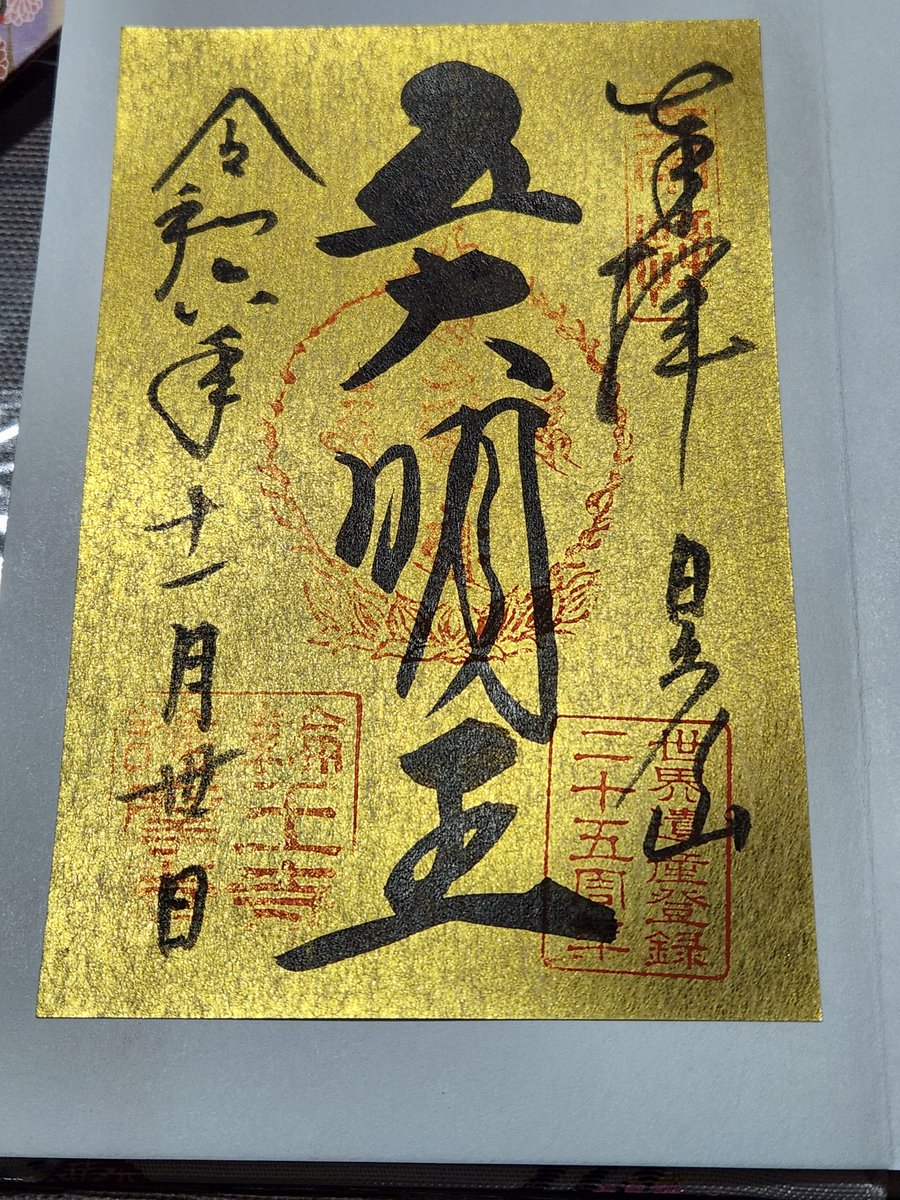 奉拝 日光山
世界遺産登録
二十五周年
五大明王
令和六年十一月丗日
輪王寺